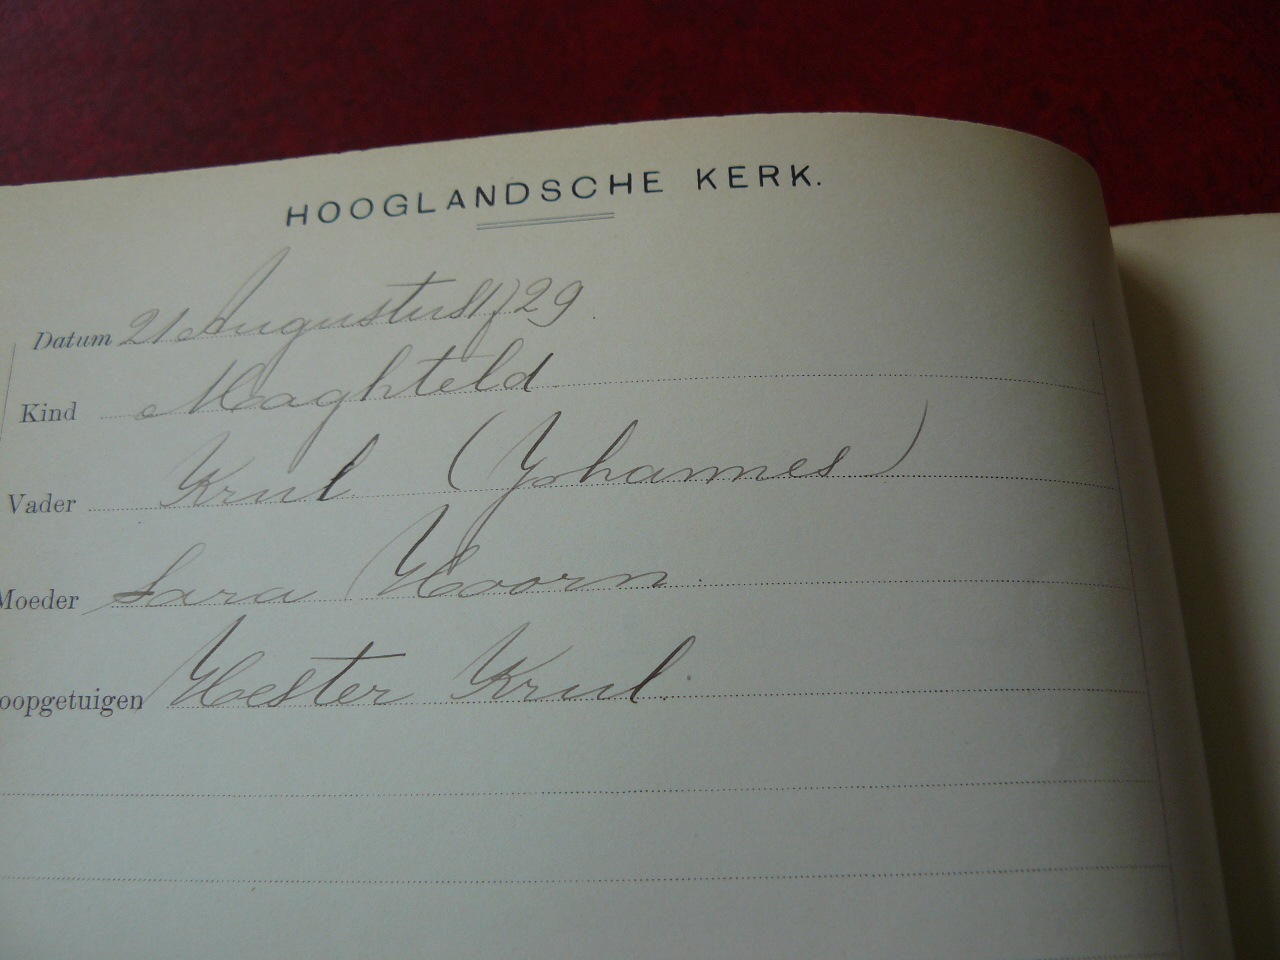 HOOGLANDSCHE KERK.
Datum 21 Augustus 1729.
Kind Maghteld
Vader Krul (Johannes)
Moeder Sara Hoorn.
oopgetuigen Hester Krul.